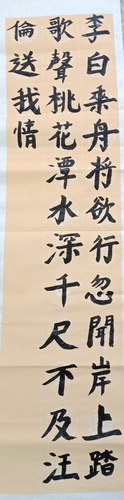 李白乘舟将欲行忽聞岸上踏
歌聲桃花潭水深千尺不及汪
倫送我情